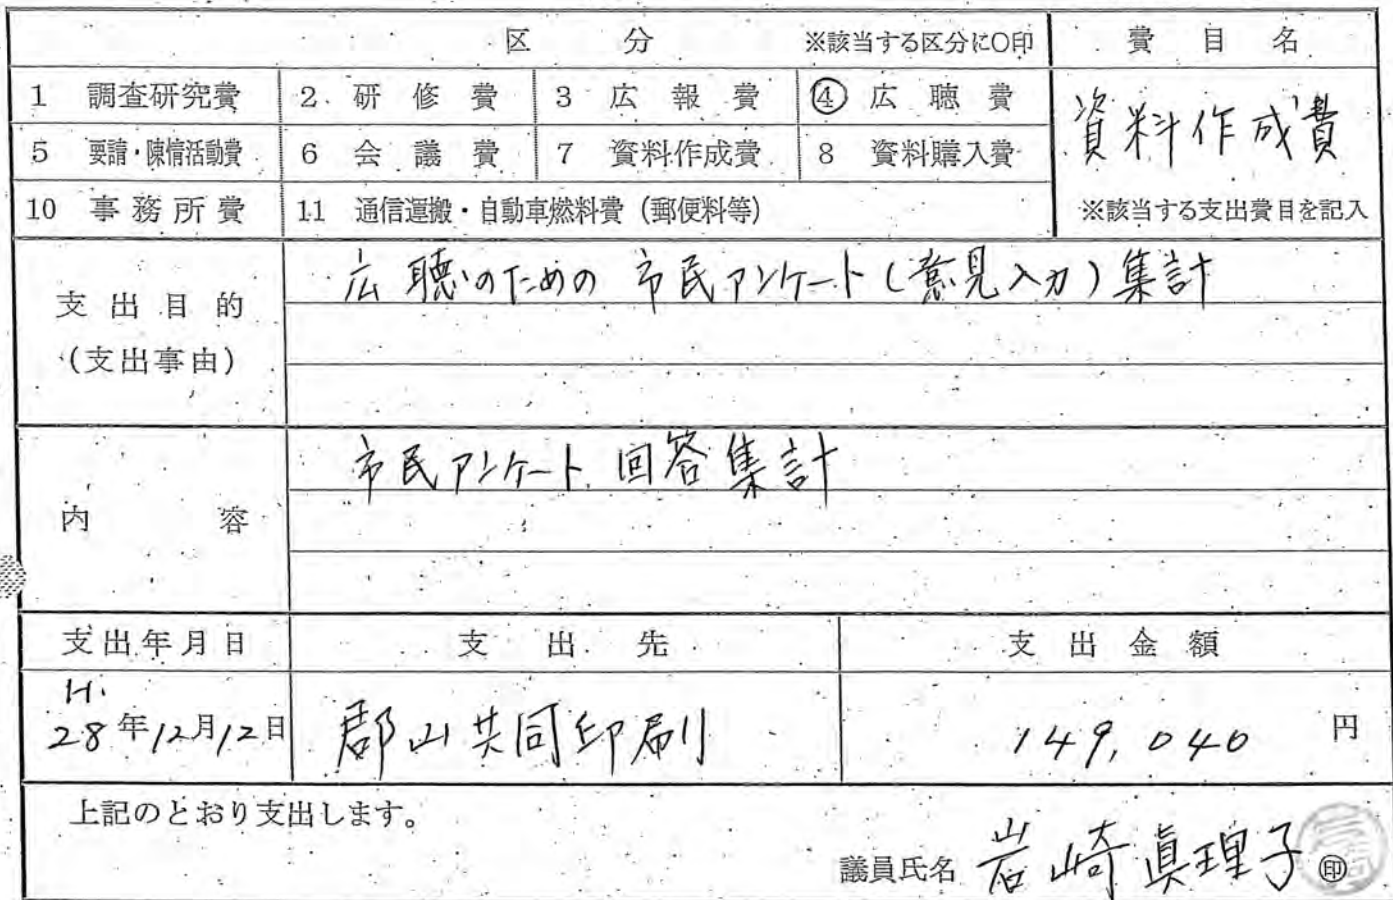 区 分 ※該当する区分に○印 費 目 名
1 調査研究費 2 研 修 費 3 広 報 費 ④ 広 聴 費 資料作成費
5 要請・陳情活動費 6 会 議 費 7 資料作成費 8 資料購入費
10 事 務 所 費 11 通信運搬・自動車燃料費（郵便料等） ※該当する支出費目を記入
支 出 目 的 広聴のための 市民アンケート(意見入力)集計
(支出事由)
内 容 市民アンケート 回答集計
支出年月日 支 出 先 支 出 金 額
H.
28年12月12日 郡山共同印刷 149,040 円
上記のとおり支出します。
議員氏名 岩崎眞理子 ㊞